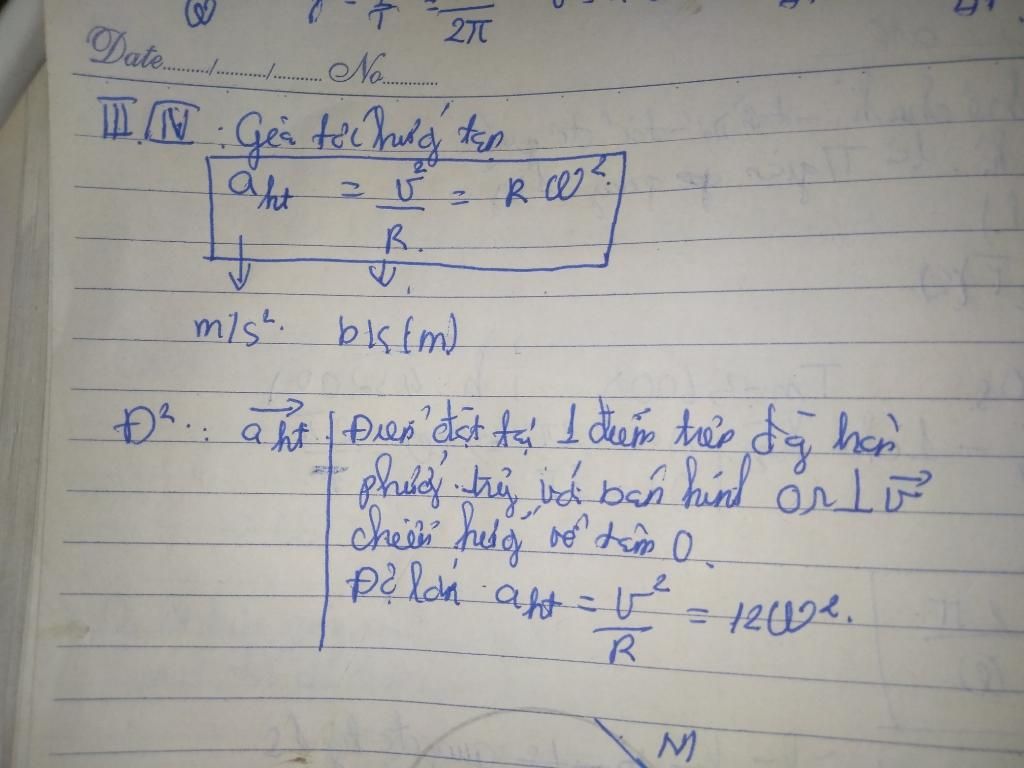 2π
Date......./......../........ No.........
III. IV : Gia tốc hướng tâm
a_ht = v²/R = Rω².
m/s². b/s (m)
Đ²: a_ht→ | Điểm đặt tại 1 điểm trên
phương trùng với bán kính ⊥ v→
chiều hướng về tâm O.
Độ lớn a_ht = v²/R = Rω².
M